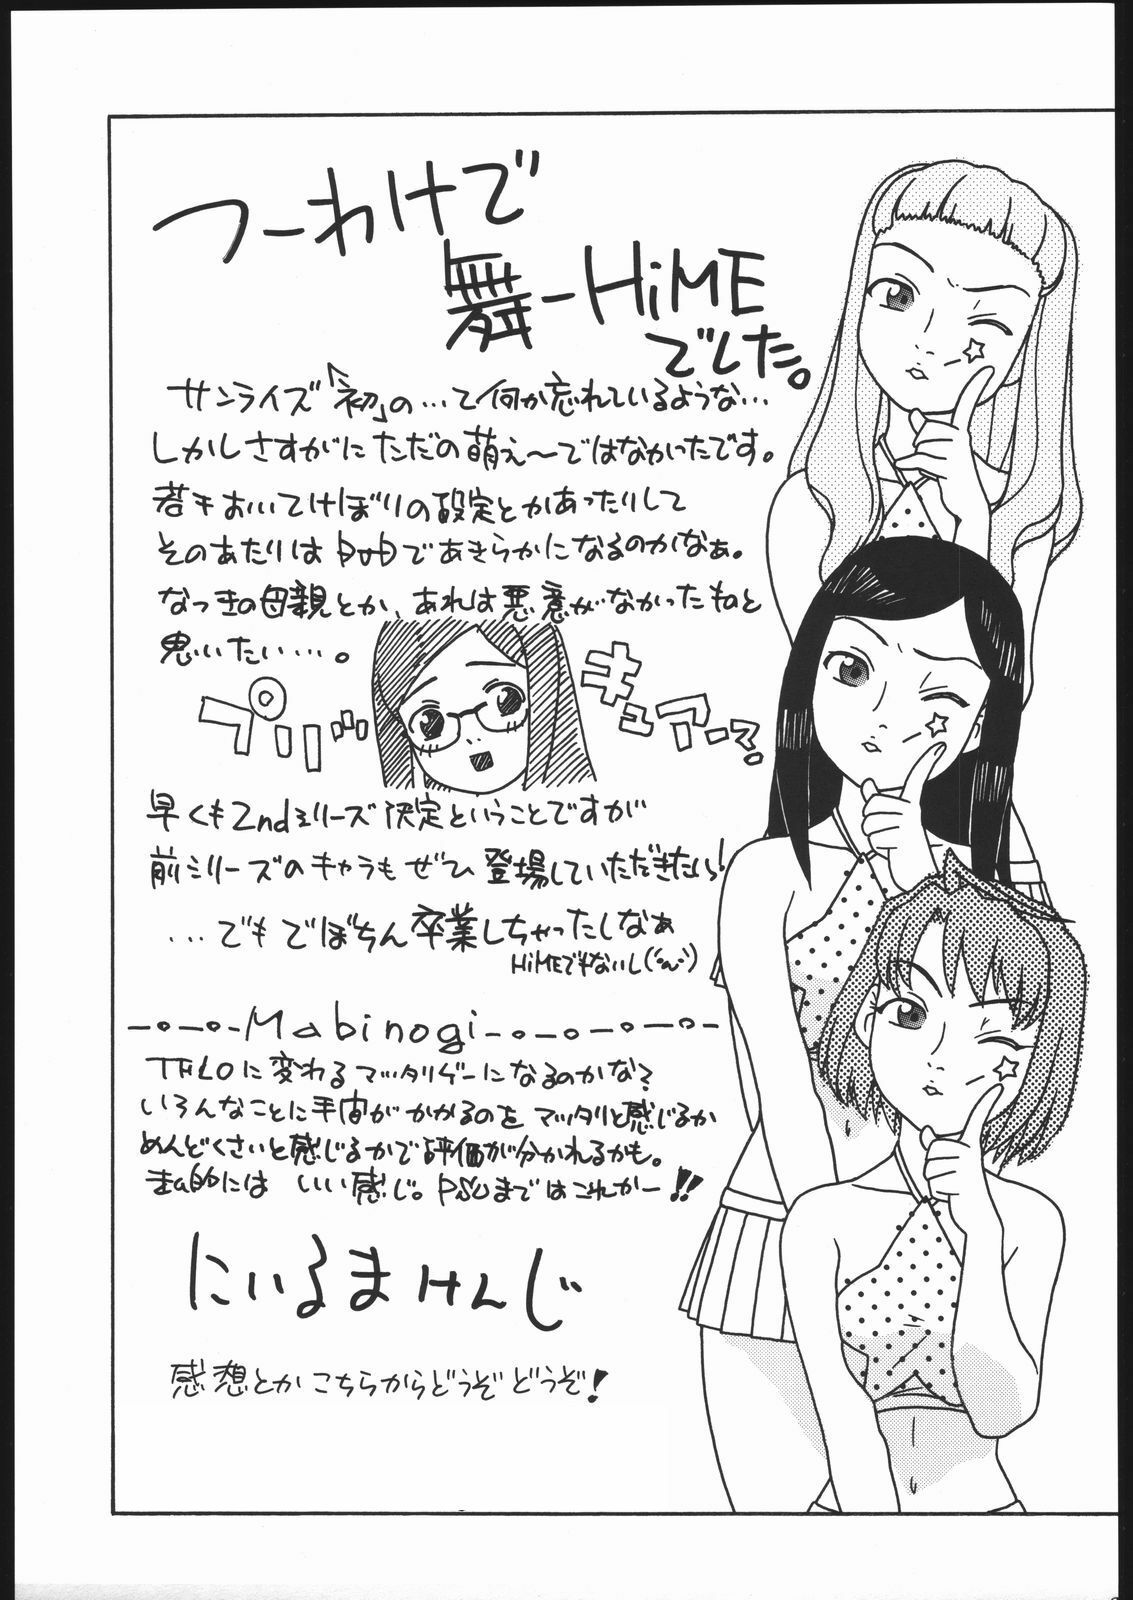 つーわけで
舞-HiMEでした。
サンライズ「初」の…て何か忘れているような…
しかしさすがにただの萌え〜ではなかったです。
若干おいてけぼりの設定とかあったりして
そのあたりはDVDであきらかになるのかなぁ。
なつきの母親とか、あれは悪意がなかったものと
思いたい…。
プリズ
キュアーマ。
早くも2ndシリーズ決定ということですが
前シリーズのキャラもぜひ登場していただきたい!
…でもでぼちん卒業しちゃったしなぁ
HiMEでもないし
Mabinogi
TFLOに変わるマッタリゲーになるのかな?
いろんなことに手間がかかるのをマッタリと感じるか
めんどくさいと感じるかで評価が分かれるかも。
まぁ的には いい感じ。PSUまではこれかー!!
にいるまけんじ
感想とかこちらからどうぞどうぞ!